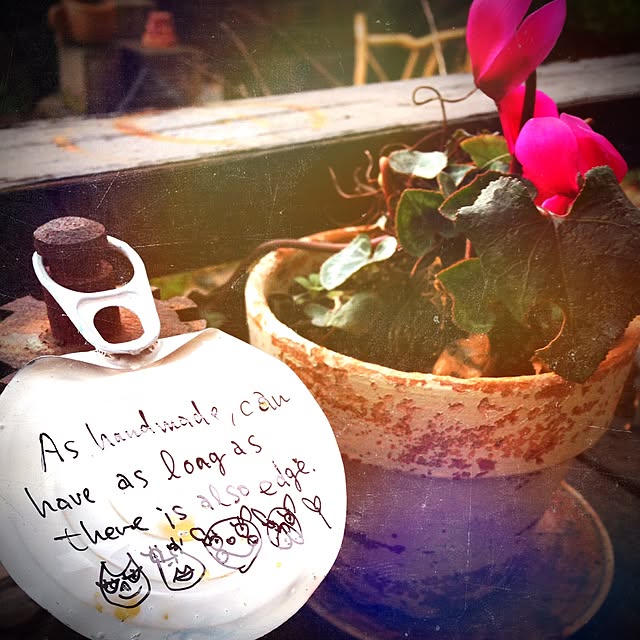 As handmade, can
have as long as
there is also edge.